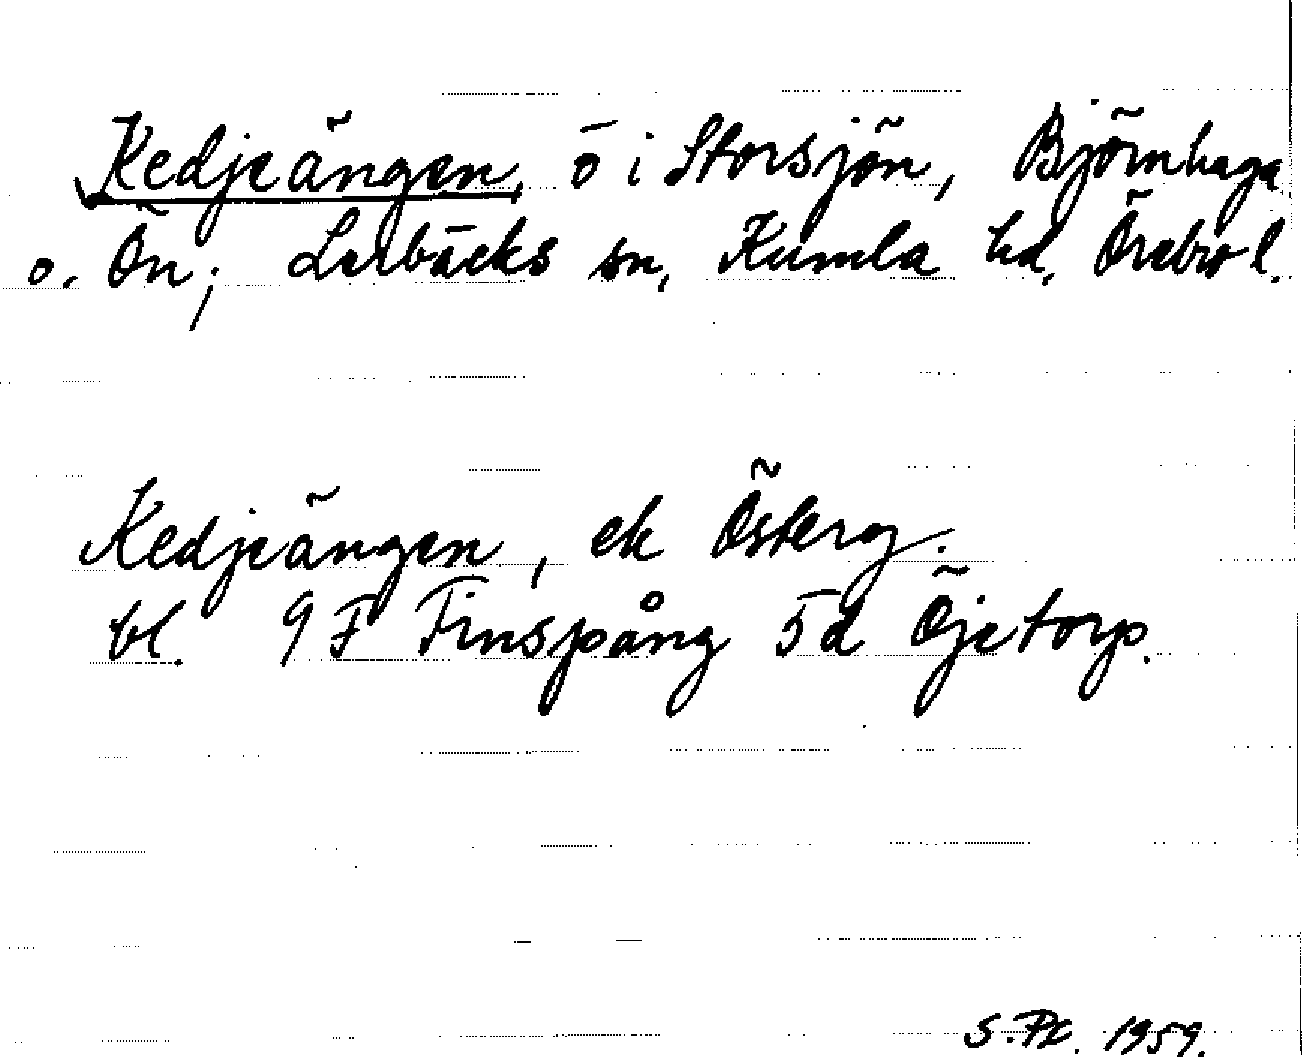 Kedjeängen, ö i Storsjön, Björnhaga
o. Ön; Lerbäcks sn, Kumla hd, Örebro l.
Kedjeängen, ek Österg.
bl. 9 F Finspång 5d Öjetorp.
S.Pl. 1959.